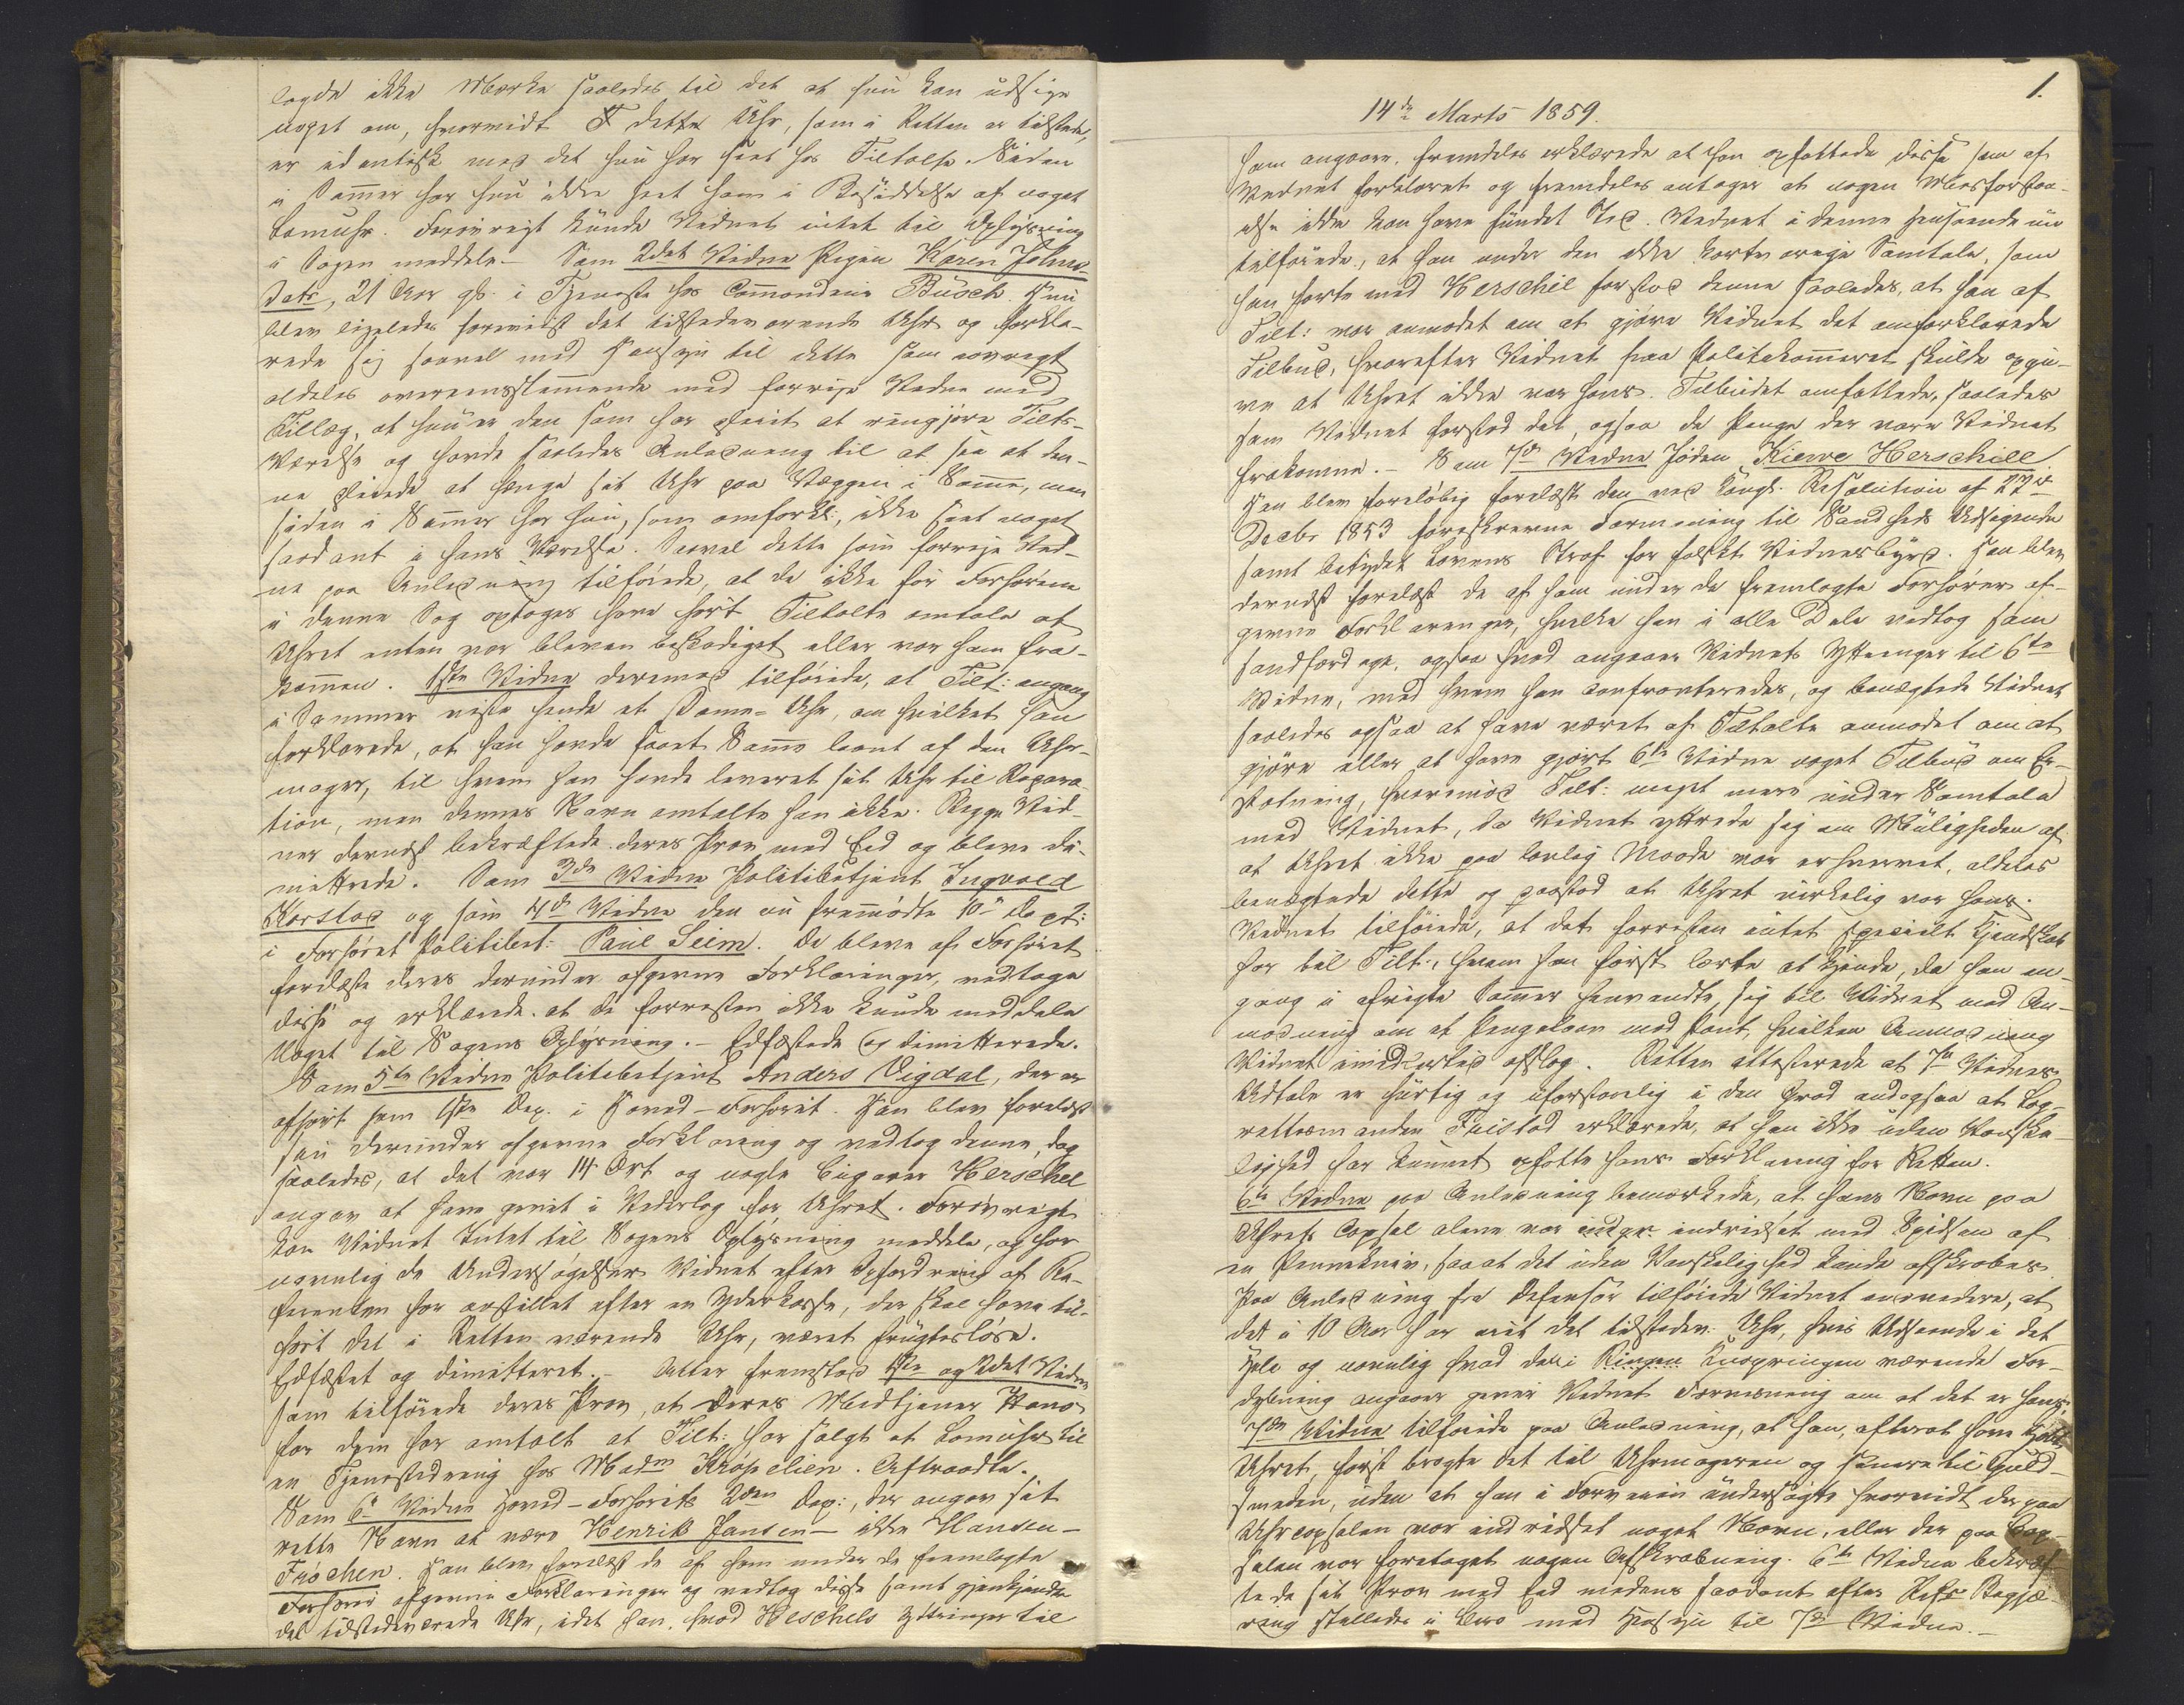 lagde ikke Mærke saaledes til det at hun kan udsige
noget om, hvorvidt dette Uhr, som i Retten er tilstede,
er identisk med det hun har seet hos Tiltalte. Siden
i Sommer har hun ikke seet ham i Besiddelse af noget
Lomuhr. Forøvrigt kunde Vidnet intet til Oplysning
i Sagen meddele. – Som 2det Vidne Pigen Karen Johns-
datr, 21 Aar gl. i Tjeneste hos Commandeur Büsch. Hun
blev ligeledes foreviist det tilstedeværende Uhr og forkla-
rede sig saavel med Hensyn til dette som iøvrigt
aldeles overeensstemmende med forrige Vidne med
Tillæg, at hun er den som har pleiet at rengjøre Tilts
Værelse og havde saaledes Anledning til at see at den-
ne pleiede at hænge sit Uhr paa Væggen i Samme, men
siden i Sommer har hun, som omforkl:, ikke seet noget
saadant i hans Værelse. Saavel dette som forrige Vid-
ne paa Anledning tilføiede, at de ikke før Forhørene
i denne Sag optoges have hørt Tiltalte omtale at
Uhret enten var bleven beskadiget eller var ham fra-
kommen. 1ste Vidne derimod tilføiede, at Tilt: engang
i Sommer viste hende et Dame-Uhr, om hvilket han
forklarede, at han havde faaet Samme laant af den Uhr-
mager, til hvem han havde leveret sit Uhr til Repara-
tion, men dennes Navn omtalte han ikke. Begge Vid-
ner dernæst bekræftede deres Prov med Eed og bleve di-
mitterede. Som 3die Vidne Politibetjent Ingvald
Korslod og som 4de Vidne den nu fremmødte 10de Dept:
i Forhøret Politibet: Paul Seim. De bleve af Forhøret
forelæste deres derunder afgivne Forklaringer, vedtoge
disse og erklærede at de forresten ikke kunde meddele
Noget til Sagens Oplysning. – Edfæstede og dimitterede.
Som 5te Vidne Politibetjent Anders Vigdal, der er
afhørt som 1ste Dep. i Hoved-Forhøret. Han blev forelæst
sin derunder afgivne Forklaring og vedtog denne, dog
saaledes, at det var 14 Ort og nogle Cigarer Herschel
angav at have givet i Vederlag for Uhret. Forøvrigt
kan Vidnet Intet til Sagens Oplysning meddele, og har
navnlig de Undersøgelser Vidnet efter Opfordring af Re-
ferenten har anstillet efter en Yderkasse, der skal have til-
hørt det i Retten værende Uhr, været frugtesløse.
Edfæstet og dimitteret. – Atter fremstod 1ste og 2det Vidne
som tilføiede deres Prov, at deres Medtjener Hans
for dem har omtalt at Tilt: har solgt et Lomuhr til
en Tjenestedreng hos Madm Krøpelien. Aftraadte.
Som 6te Vidne Hoved-Forhørets 2den Dep:, der angav sit
rette Navn at være Henrik Jansen – ikke Hansen –
Frøchen. Han blev forelæst de af ham under de fremlagte
Forhører afgivne Forklaringer og vedtog disse samt gjenkjendte
det tilstedeværede Uhr, idet han, hvad Heschels Yttringer til
1.
14de Marts 1859.
ham angaaer, fremdeles erklærede at han opfattede disse som af
Vidnet forklaret og fremdeles antager at nogen Misforstaa-
else ikke kan have fundet Sted. Vidnet i denne Henseende nu
tilføiede, at han under den ikke kortvarige Samtale, som
han førte med Herschel forstod denne saaledes, at han af
Tilt: var anmodet om at gjøre Vidnet det omforklarede
Tilbud, hvorefter Vidnet paa Politikammeret skulde opgi-
ve at Uhret ikke var hans. Tilbudet omfattede, saaledes
som Vidnet forstod det, ogsaa de Penge der vare Vidnet
frakomne. – Som 7de Vidne Jøden Kiewe Herschell
Han blev foreløbig forelæst den ved Kongl. Resolution af 22de
Decbr 1853 foreskrevne Formaning til Sandheds Udsigende
samt betydet Lovens Straf for falskt Vidnesbyrd. Han blev
dernæst forelæst de af ham under de fremlagte Forhører af-
givne Forklaringer, hvilke han i alle Dele vedtog som
sandfærdige, ogsaa hvad angaaer Vidnets Yttringer til 6te
Vidne, med hvem han confronteredes, og benægtede Vidnet
saaledes ogsaa at have været af Tiltalte anmodet om at
gjøre eller at have gjort 6te Vidne noget Tilbud om Er-
statning, hvorimod Tilt: meget mere under Samtale
med Vidnet, da Vidnet yttrede sig om Muligheden af
at Uhret ikke paa lovlig Maade var erhvervet, aldeles
benægtede dette og paastod at Uhret virkelig var hans.
Vidnet tilføiede, at det forresten intet specielt Kjendskab
har til Tilt., hvem han først lærte at kjende, da han en-
gang i afvigte Sommer henvendte sig til Vidnet med An-
modning om et Pengelaan mod Pant, hvilken Anmodning
Vidnet imidlertid afslog. Retten attesterede at 7de Vidnes
Udtale er hurtig og uforstaaelig i den Grad endogsaa at Lag-
rettesmanden Fristad erklærede, at han ikke uden Vanske-
lighed har kunnet opfatte hans Forklaring for Retten.
6te Vidne paa Anledning bemærkede, at hans Navn paa
Uhrets Capsel alene var indgr. indridset med Spidsen af
en Pennekniv, saa at det uden Vanskelighed kunde afskrabes.
Paa Anledning fra Defensor tilføiede Vidnet endvidere, at
det i 10 Aar har eiet det tilstedev: Uhr, hvis Udseende i det
Hele og navnlig hvad den i Ringen Knapringen værende For-
dybning angaaer giver Vidnet Formening om at det er hans.
7de Vidne tilføiede paa Anledning, at han, efterat have kjøbt
Uhret, først bragte det til Uhrmageren og senere til Guld-
smeden, uden at han i Forveien undersøgte hvorvidt der paa
Uhrcapselen var indridset noget Navn, eller der paa Cap-
selen var foretaget nogen Afskrabning. 6te Vidne bekræf-
tede sit Prov med Eed medens saadant efter Refs Begjæ-
ring stilledes i Bero med Hensyn til 7de Vidne. –